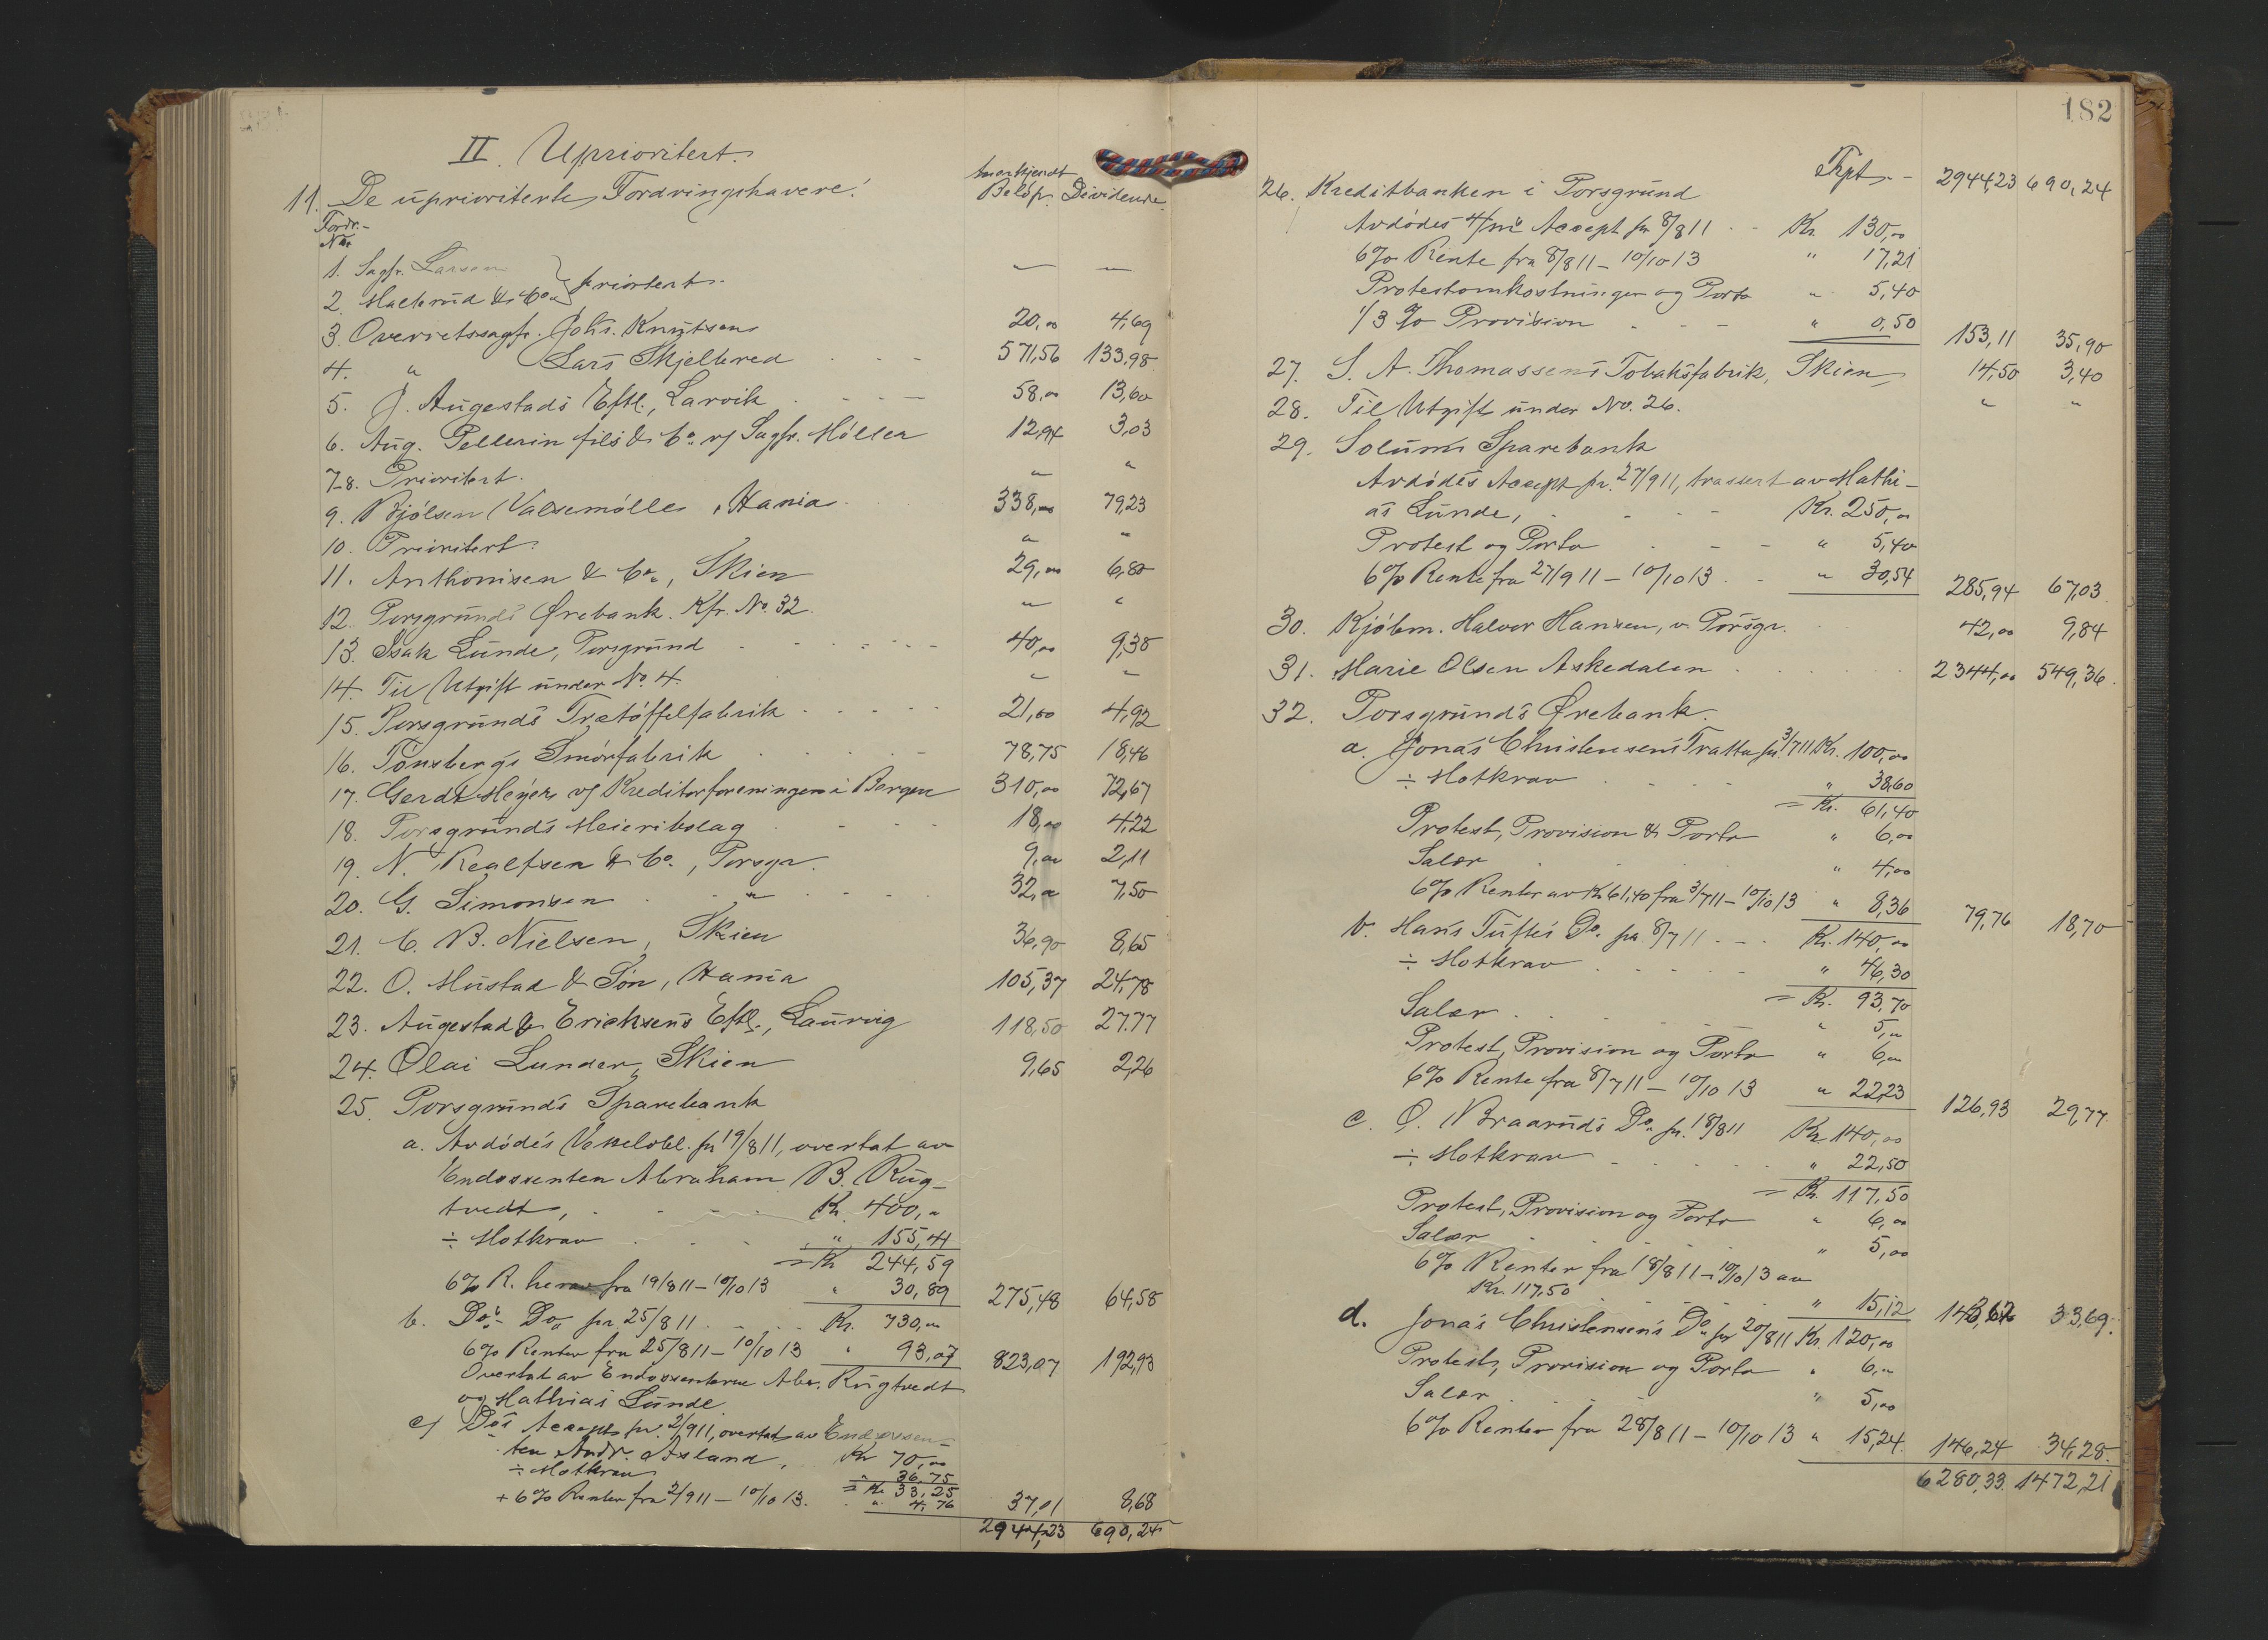 II. Uprioritert.
11. De uprioriterte Fordringshavere:
Anerkjendt
Beløp. Dividende.
Fordr.-
No.
1. Sagfr. Larsen
2. Halterud & Co. } prioritert. — —
3. Overretssagfr. Johs. Knutsen 20,00 4,69
4. " Lars Skjelbred 571,56 133,98
5. J. Augestads Eftf., Larvik 58,00 13,60
6. Aug. Pellerin fils & Co. v/ Sagfr. Møller 12,94 3,03
7-8. Prioritert. " "
9. Bjølsen Valsemølle, Kania 338,00 79,23
10. Prioritert. " "
11. Anthonisen & Co., Skien 29,00 6,80
12. Porsgrunds Ørebank. Kfr. No. 32. " "
13. Isak Lunde, Porsgrund 40,00 9,38
14. Til Utgift under No. 4. " "
15. Porsgrunds Trætøffelfabrik 21,00 4,92
16. Tønsbergs Smørfabrik 78,75 18,46
17. Gerdt Meyer v/ Kreditorforeningen i Bergen 310,00 72,67
18. Porsgrunds Meieribolag 18,00 4,22
19. N. Realfsen & Co., Porsgr. 9,00 2,11
20. G. Simonsen " 32,00 7,50
21. C. B. Nielsen, Skien 36,90 8,65
22. O. Mustad & Søn, Kania 105,37 24,78
23. Augestad & Ericksens Eftf., Laurvig 118,50 27,77
24. Olai Lunder, Skien 9,65 2,26
25. Porsgrunds Sparebank
a. Avdødes Vekselobl. pr 19/8 11, overtat av
Endossenten Abraham B. Rug-
tvedt, Kr. 400,00
÷ Motkrav " 155,41
= Kr 244,59
6% R. herav fra 19/8 11 – 10/10 13 " 30,89 275,48 64,58
b. Do. Do. pr. 25/8 11 Kr. 730,00
6% Renter fra 25/8 11 – 10/10 13 " 93,07 823,07 192,93
Overtat av Endossenterne Abr. Rugtvedt
og Mathias Lunde.
c) Do's Accept pr. 2/9 11, overtat av Endossen-
ten Andr. Asland, Kr 70,00
÷ Motkrav " 36,75
= Kr 33,25
+ 6% Renter fra 2/9 11 – 10/10 13. " 4,76 37,01 8,68
2944,23 690,24
182
Trpt. 2944,23 690,24
26. Kreditbanken i Porsgrund
Avdødes 4/m Accept pr 8/8 11 Kr. 130,00
6% Rente fra 8/8 11 – 10/10 13 " 17,21
Protestomkostninger og Porto " 5,40
1/3 % Provision " 0,50 153,11 35,90
27. S. A. Thomassens Tobaksfabrik, Skien 14,50 3,40
28. Til Utgift under No. 26. " "
29. Solums Sparebank
Avdødes Accept pr. 27/9 11, trassert av Mathi-
as Lunde, Kr. 250,00
Protest og Porto " 5,40
6% Rente fra 27/9 11 – 10/10 13 " 30,54 285,94 67,03
30. Kjøbm. Halvor Hansen, v. Porsgr. 42,00 9,84
31. Marie Olsen Askedalen 2344,00 549,36
32. Porsgrunds Ørebank.
a. Jonas Christensens Tratta pr. 3/7 11 Kr. 100,00
÷ Motkrav " 38,60
= Kr. 61,40
Protest, Provision & Porto " 6,00
Salær " 4,00
6% Renter av Kr 61,40 fra 3/7 11 – 10/10 13 " 8,36 79,76 18,70
b. Hans Tuftes Do. pr. 8/7 11 Kr. 140,00
÷ Motkrav " 46,30
= Kr. 93,70
Salær " 5,00
Protest, Provision og Porto " 6,00
6% Rente fra 8/7 11 – 10/10 13 " 22,23 126,93 29,77
c. O. Braaruds Do. pr. 18/8 11 Kr. 140,00
÷ Motkrav " 22,50
= Kr. 117,50
Protest, Provision og Porto " 6,00
Salær " 5,00
6% Renter fra 18/8 11 – 10/10 13 av
Kr. 117,50 " 15,12 143,62 33,69.
d. Jonas Christensens Do. pr 28/8 11 Kr. 120,00
Protest, Provision og Porto " 6,00
Salær " 5,00
6% Renter fra 28/8 11 – 10/10 13 " 15,24 146,24 34,28.
6280,33. 1472,21